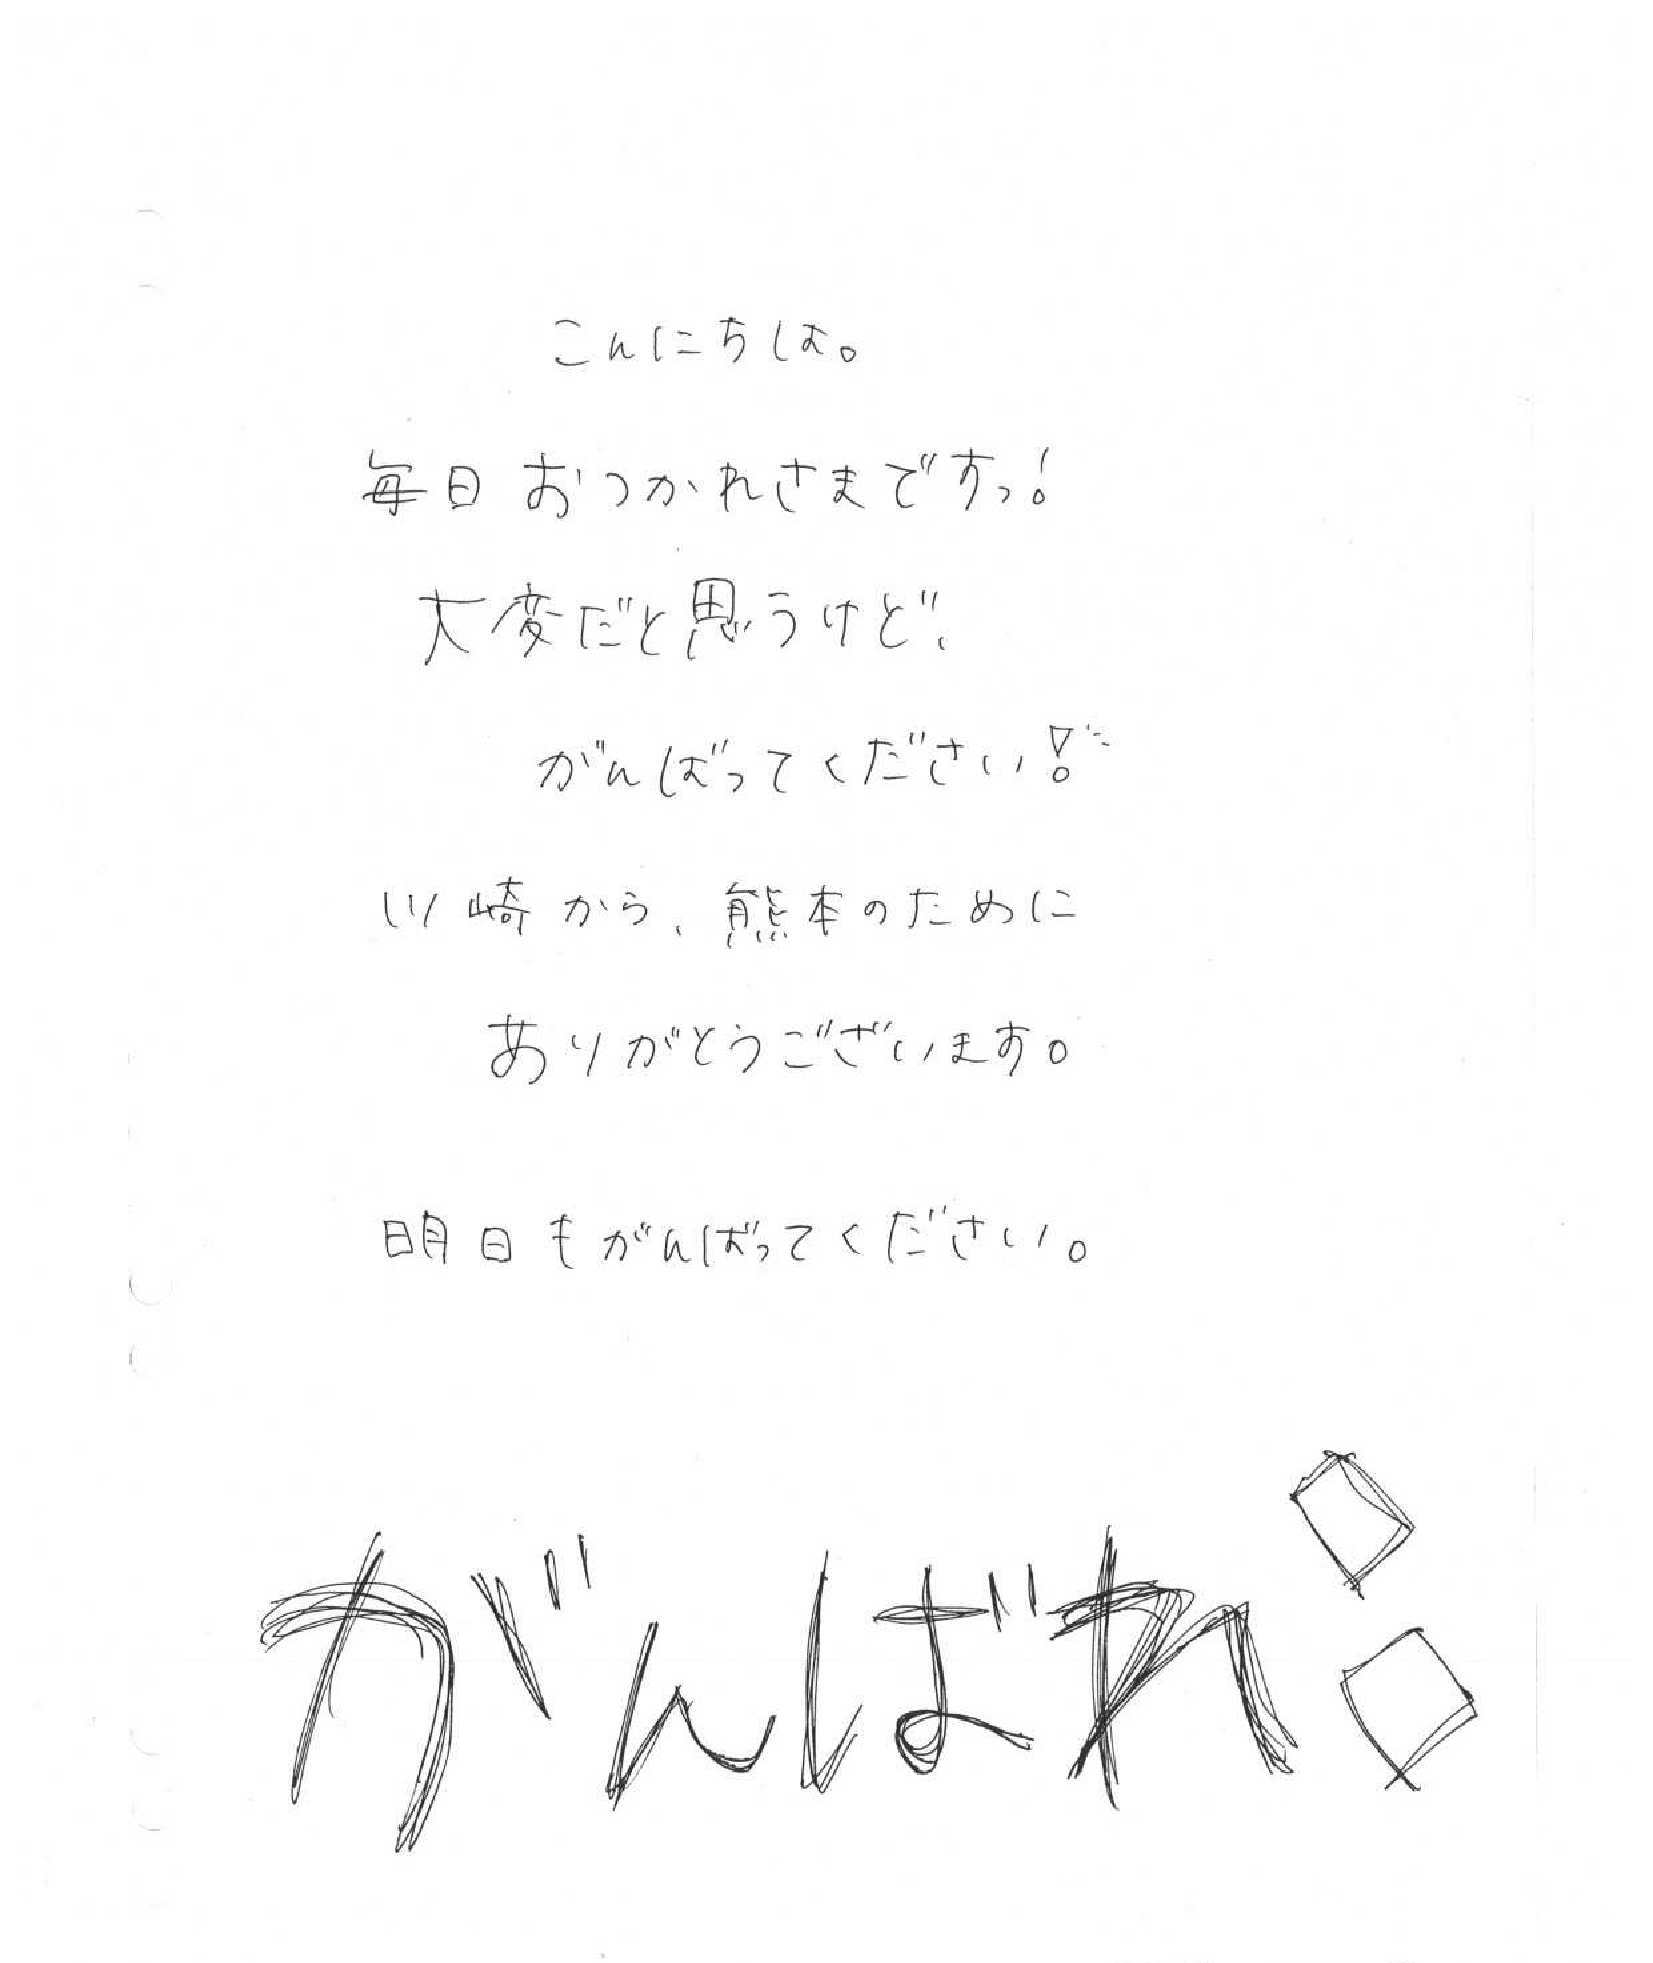 こんにちは。
毎日おつかれさまですっ!
大変だと思うけど、
がんばってください!
川崎から、熊本のために
ありがとうございます。
明日もがんばってください。
がんばれ